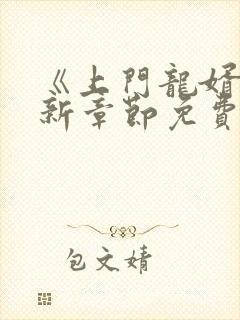 《上門龍婿
新章節免費
包文婧